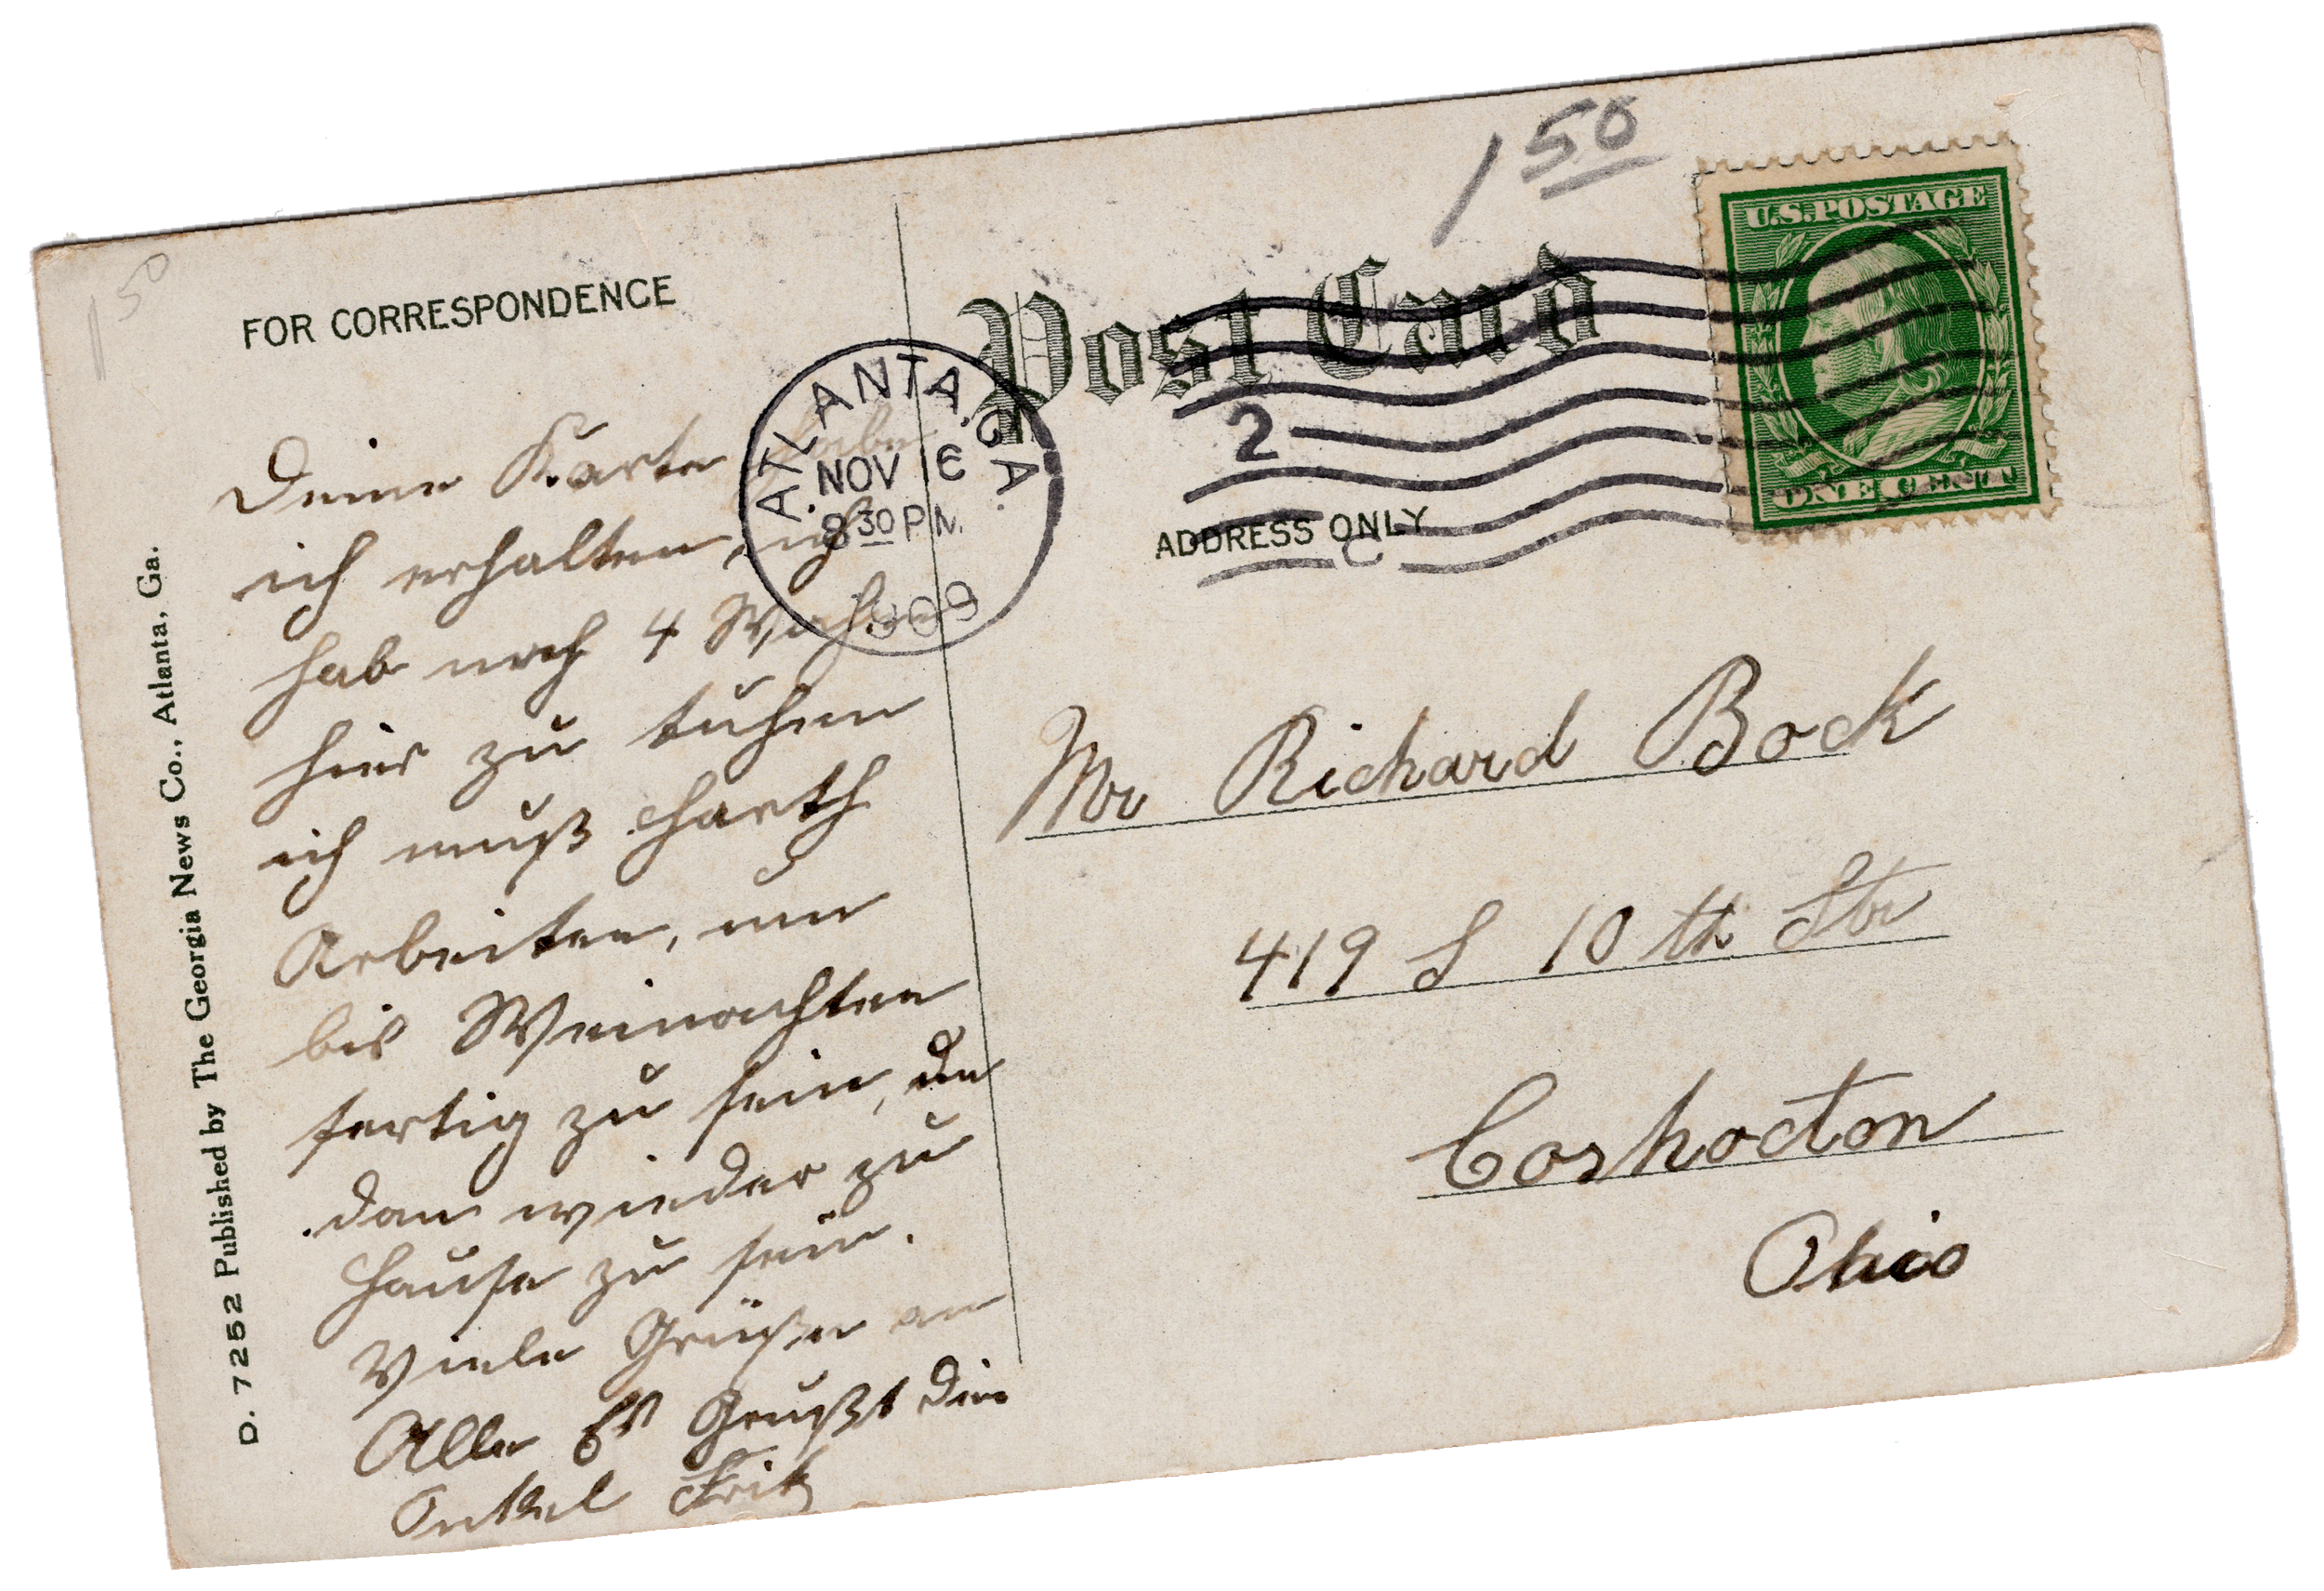 1 50
1 50
FOR CORRESPONDENCE
Post Card
U.S. POSTAGE
ONE CENT
ATLANTA, GA.
NOV 6
8 30 P M.
1909
2
ADDRESS ONLY
C
Deine Karte habe
ich erhalten, ich
hab noch 4 Wochen
hier zu tuhen
ich muß harth
Arbeiten, um
bis Weinachten
fertig zu sein, um
dan wieder zu
Hause zu sein.
Viele Grüße an
Alle Es Grüßt dein
Onkel Fritz
Mr Richard Bock
419 S 10 th Str
Coshocton
Ohio
D. 7252 Published by The Georgia News Co., Atlanta, Ga.